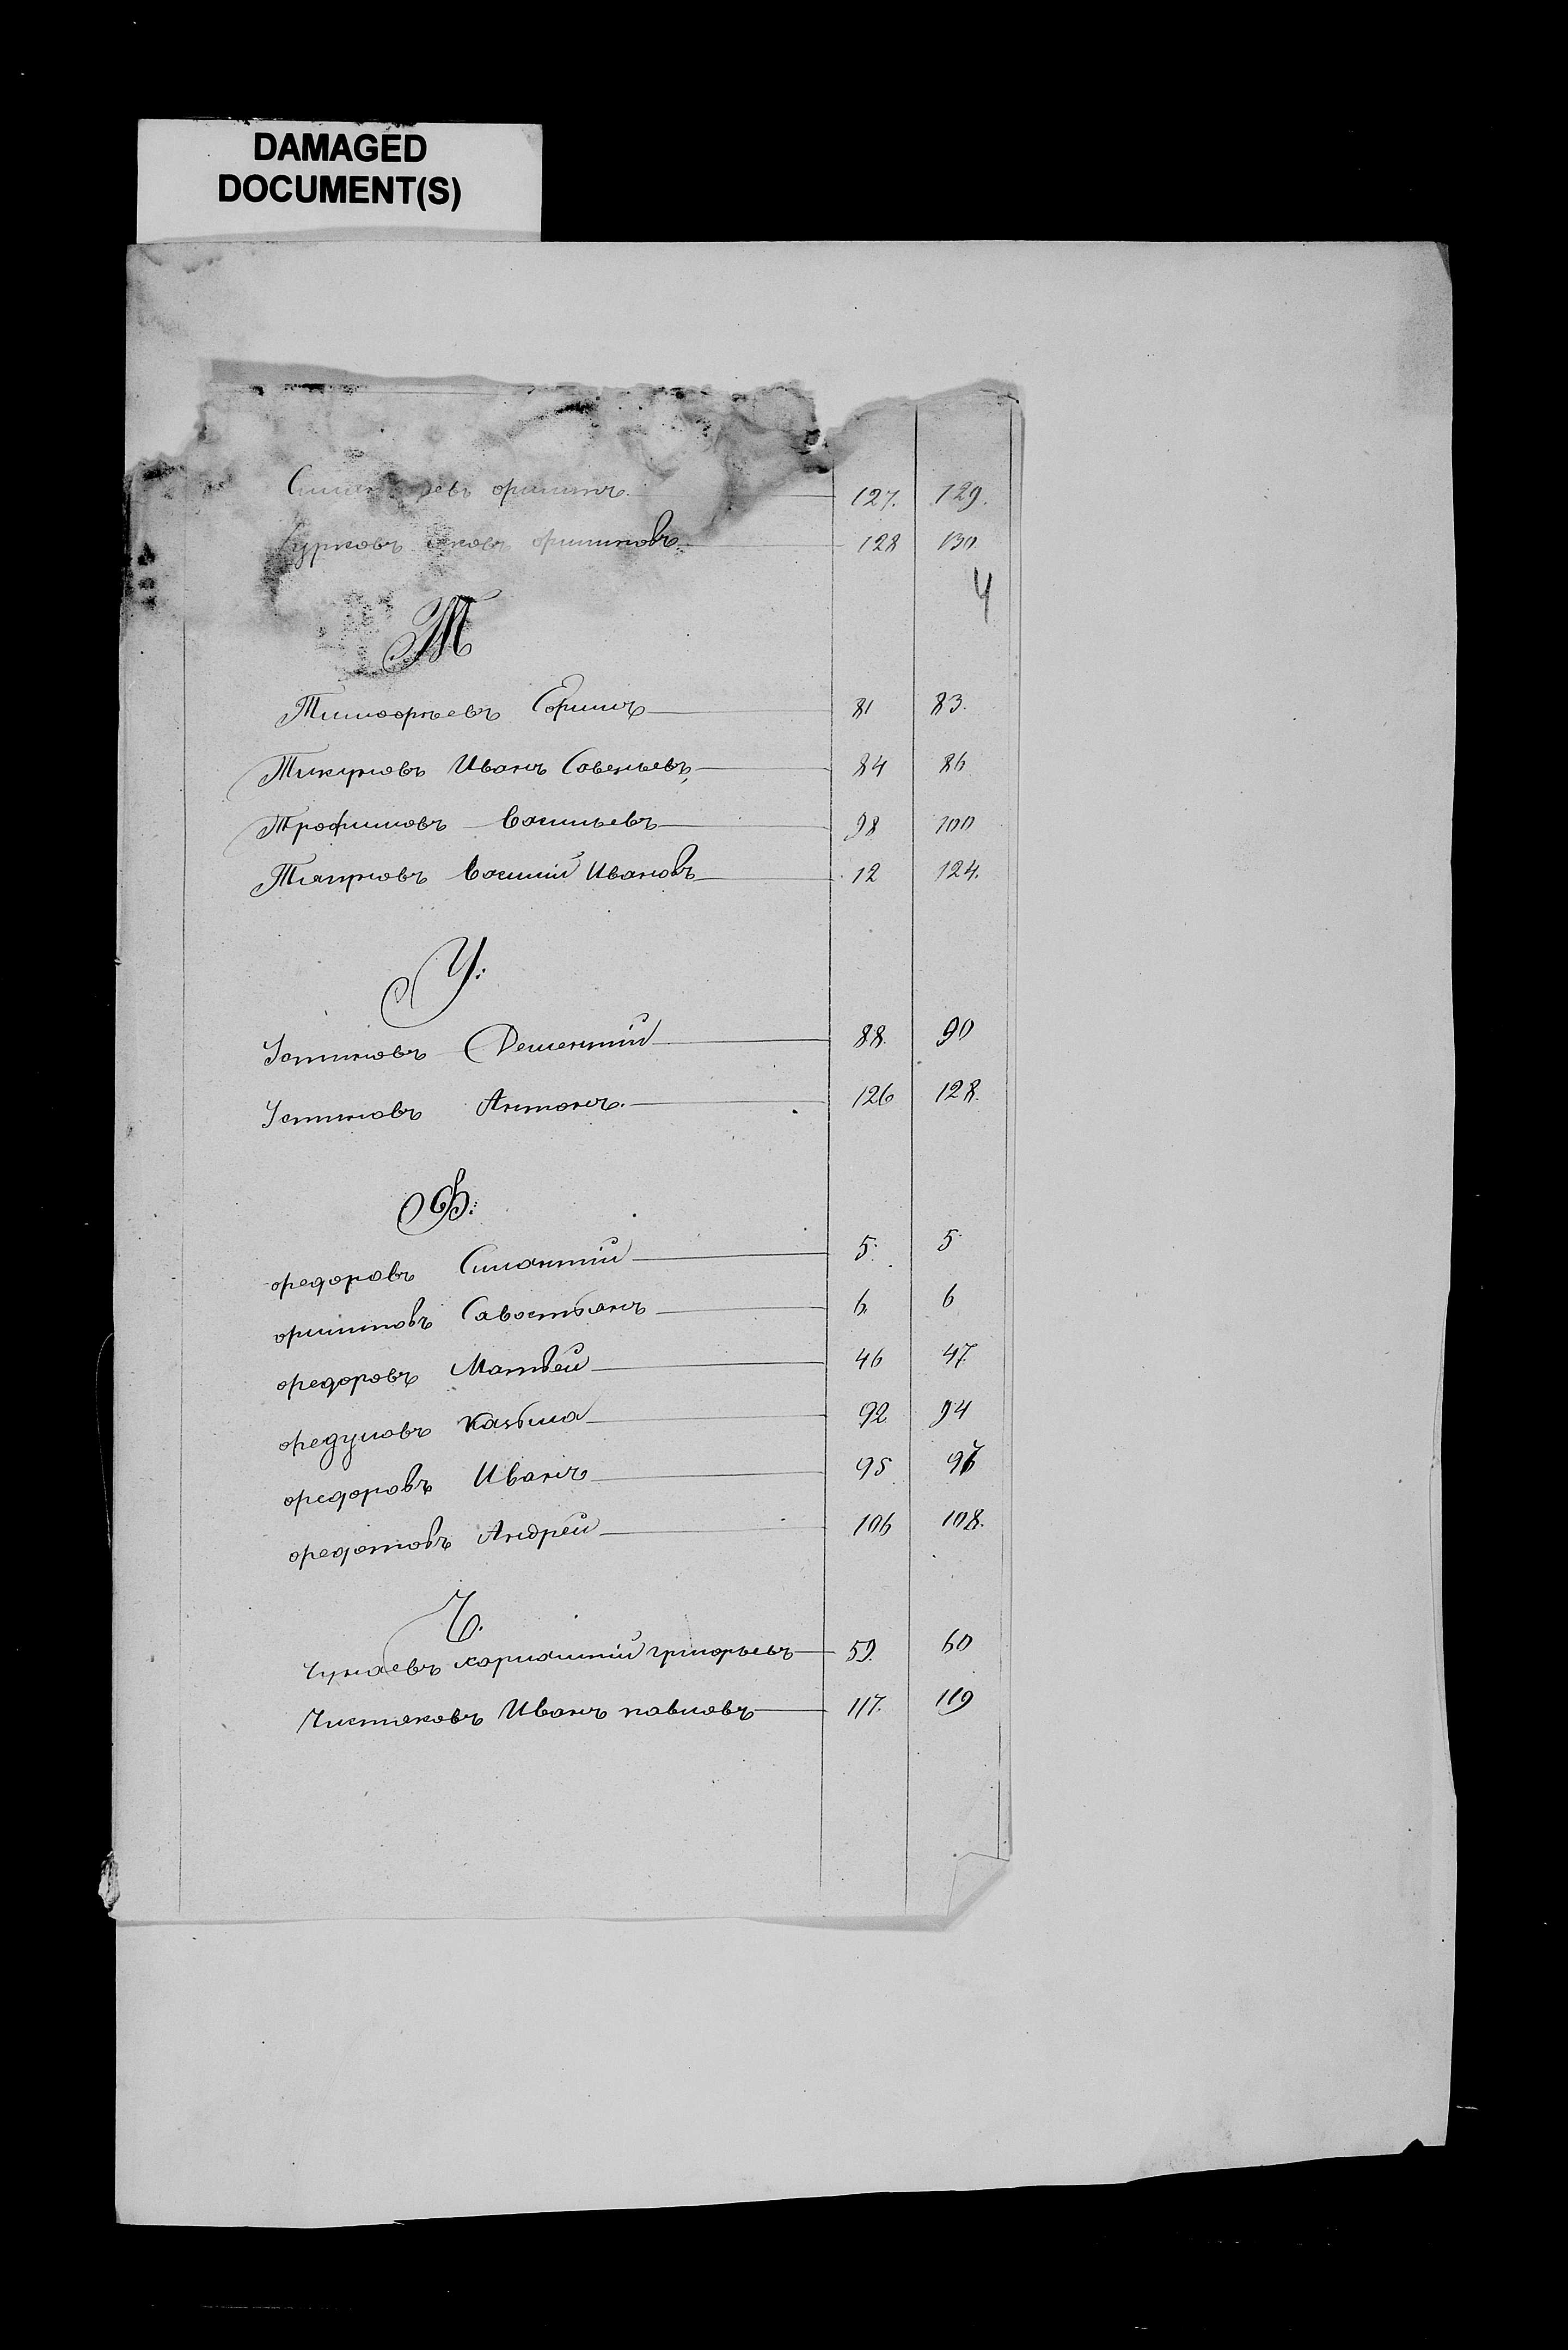 DAMAGED
DOCUMENT(S)
филипъ. 127. 129.
филиповъ. 128 130
4
Т
Тимофѣевъ Ефимъ 81 83.
Тикуновъ Иванъ Савельевъ 84 86
Трофимовъ Васильевъ 98 100
Василий Ивановъ 12 124.
У:
Устиновъ Дементий 88. 90
Устиновъ Антонъ. 126 128.
Ф:
федоровъ Силантий 5. 5
филиповъ Савостьянъ 6. 6
федоровъ Матвей 46 47.
федуловъ Казьма 92 94
федоровъ Иванъ 95 97
федотовъ Андрей 106 108.
Ч.
Чунаевъ харлампий григорьевъ 59. 60
Чистяковъ Иванъ павловъ 117. 119